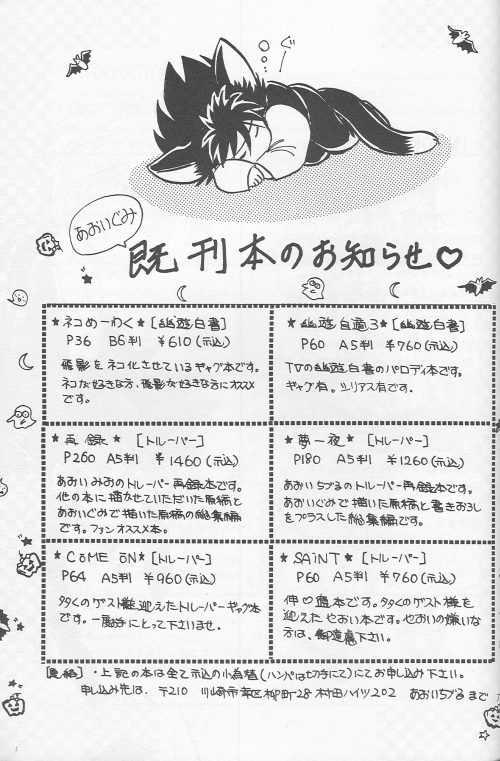 ぐー
あおいぐみ
既刊本のお知らせ♡
★ネコめーわく★[幽遊白書]
P36 B6判 ¥610(〒込)
飛影をネコ化させているギャグ本です。
ネコが好きな方、飛影が好きな方にオススメ
です。
★幽遊自適3★[幽遊白書]
P60 A5判 ¥760(〒込)
TVの幽遊白書のパロディ本です。
ギャグ有。シリアス有です。
★再録★[トルーパー]
P260 A5判 ¥1460(〒込)
あおいみおのトルーパー再録本です。
他の本に描かせていただいた原稿と
あおいぐみで描いた原稿の総集編
です。ファンオススメ本。
★夢一夜★[トルーパー]
P180 A5判 ¥1260(〒込)
あおいちづるのトルーパー再録本です。
あおいぐみで描いた原稿と書きおろし
をプラスした総集編です。
★COME ON★[トルーパー]
P64 A5判 ¥960(〒込)
多くのゲスト様迎えたトルーパーギャグ本
です。一度手にとって下さいませ。
★SAINT★[トルーパー]
P60 A5判 ¥760(〒込)
伸♡当本です。多くのゲスト様を
迎えたやおい本です。やおいの嫌いな
方は、御遠慮下さい。
・上記の本は全て〒込の小為替(ハンパは切手にて)にてお申し込み下さい。
申し込み先は、〒210 川崎市幸区柳町28 村田ハイツ202 あおいちづるまで